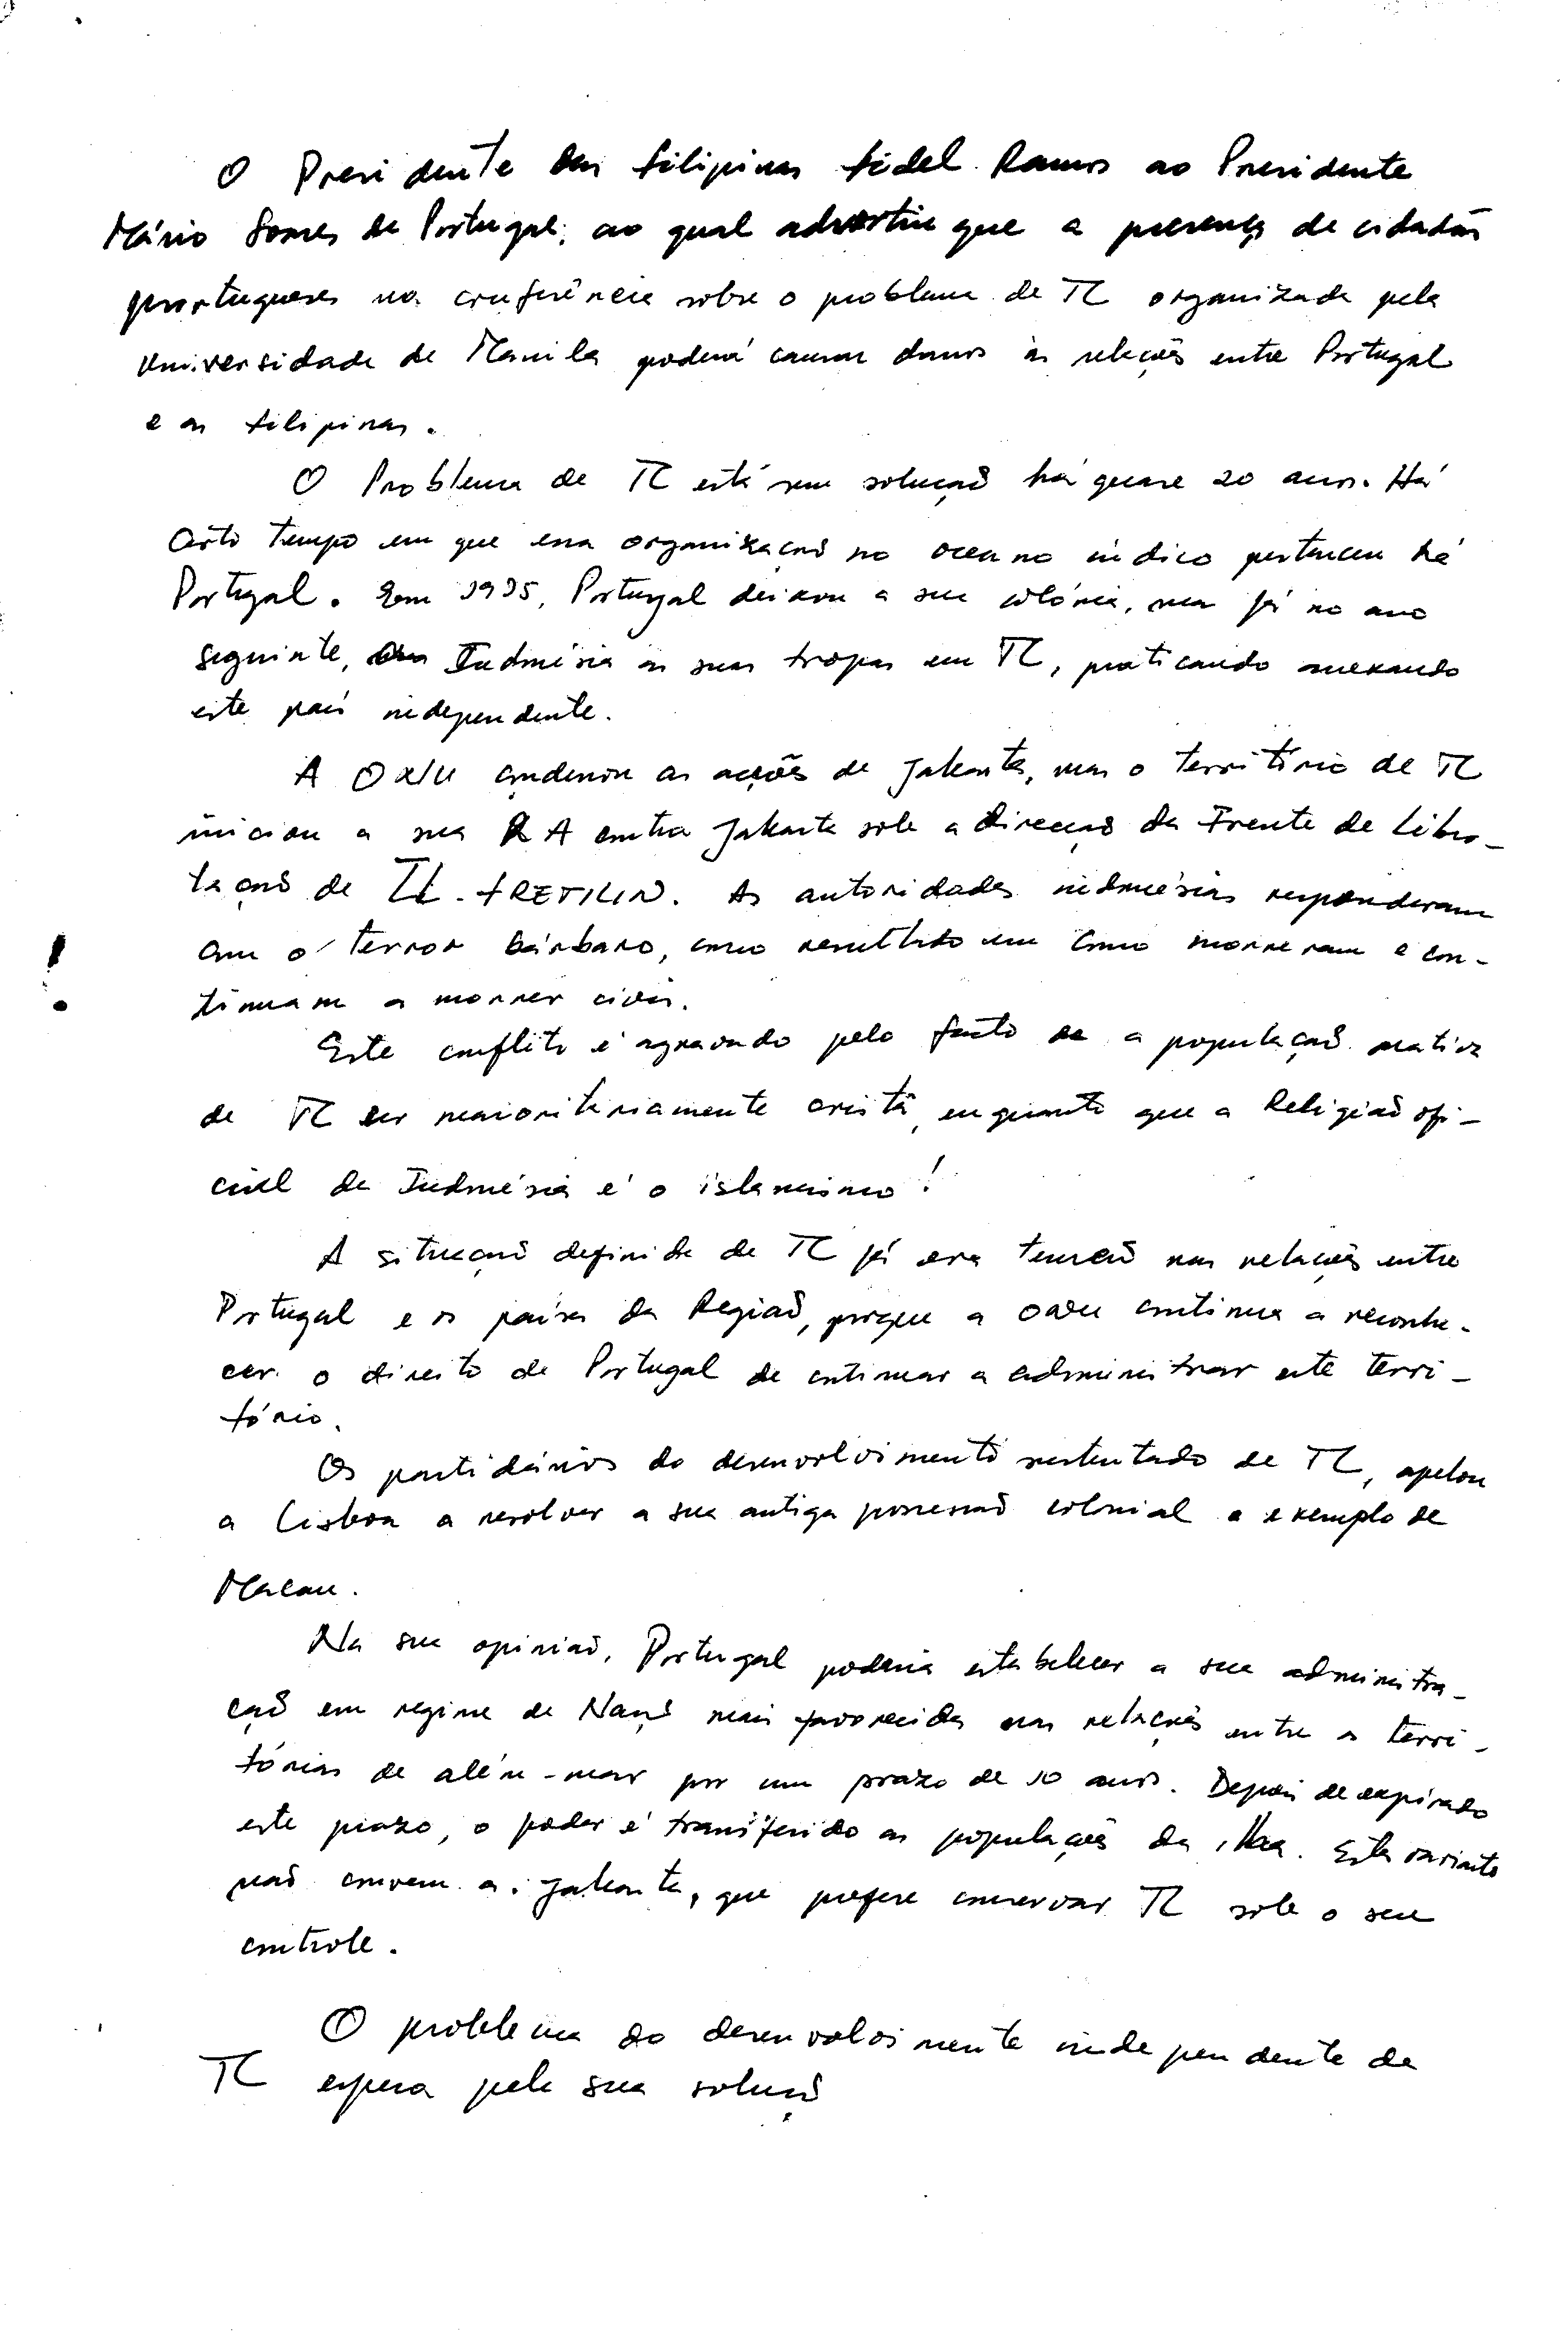 O Presidente das Filipinas Fidel Ramos ao Presidente
Mário Soares de Portugal, ao qual advertiu que a presença de cidadãos
portugueses na conferência sobre o problema de TL organizada pela
Universidade de Manila poderá causar danos às relações entre Portugal
e as Filipinas.
O Problema de TL está sem solução há quase 20 anos. Há
certo tempo em que essa organização no oceano índico pertenceu há
Portugal. Em 1975, Portugal deixou a sua colónia, mas já no ano
seguinte, Indonésia as suas tropas em TL, praticando anexando
este país independente.
A ONU condenou as acções de Jakarta, mas o território de TL
iniciou a sua RA contra Jakarta sob a direcção da Frente de Liber-
tação de TL - FRETILIN. As autoridades indonésias responderam
com o terror bárbaro, como resultado em como morreram e con-
tinuam a morrer civis.
!
Este conflito é agravado pelo facto de a população nativa
de TL ser maioritariamente cristã, enquanto que a Religião ofi-
cial da Indonésia é o islamismo!
A situação definida de TL já era tensão nas relações entre
Portugal e os países da Região, porque a ONU continua a reconhe-
cer o direito de Portugal de continuar a administrar este terri-
tório.
Os partidários do desenvolvimento sustentado de TL, apelou
a Lisboa a resolver a sua antiga possessão colonial a exemplo de
Macau.
Na sua opinião, Portugal poderia estabelecer a sua administra-
ção em regime de Nação mais favorecida nas relações entre os terri-
tórios de além-mar por um prazo de 10 anos. Depois de expirado
este prazo, o poder é transferido as populações da ilha. Esta variante
não convem a Jakarta, que prefere conservar TL sob o seu
controle.
O problema do desenvolvimento independente de
TL espera pela sua solução